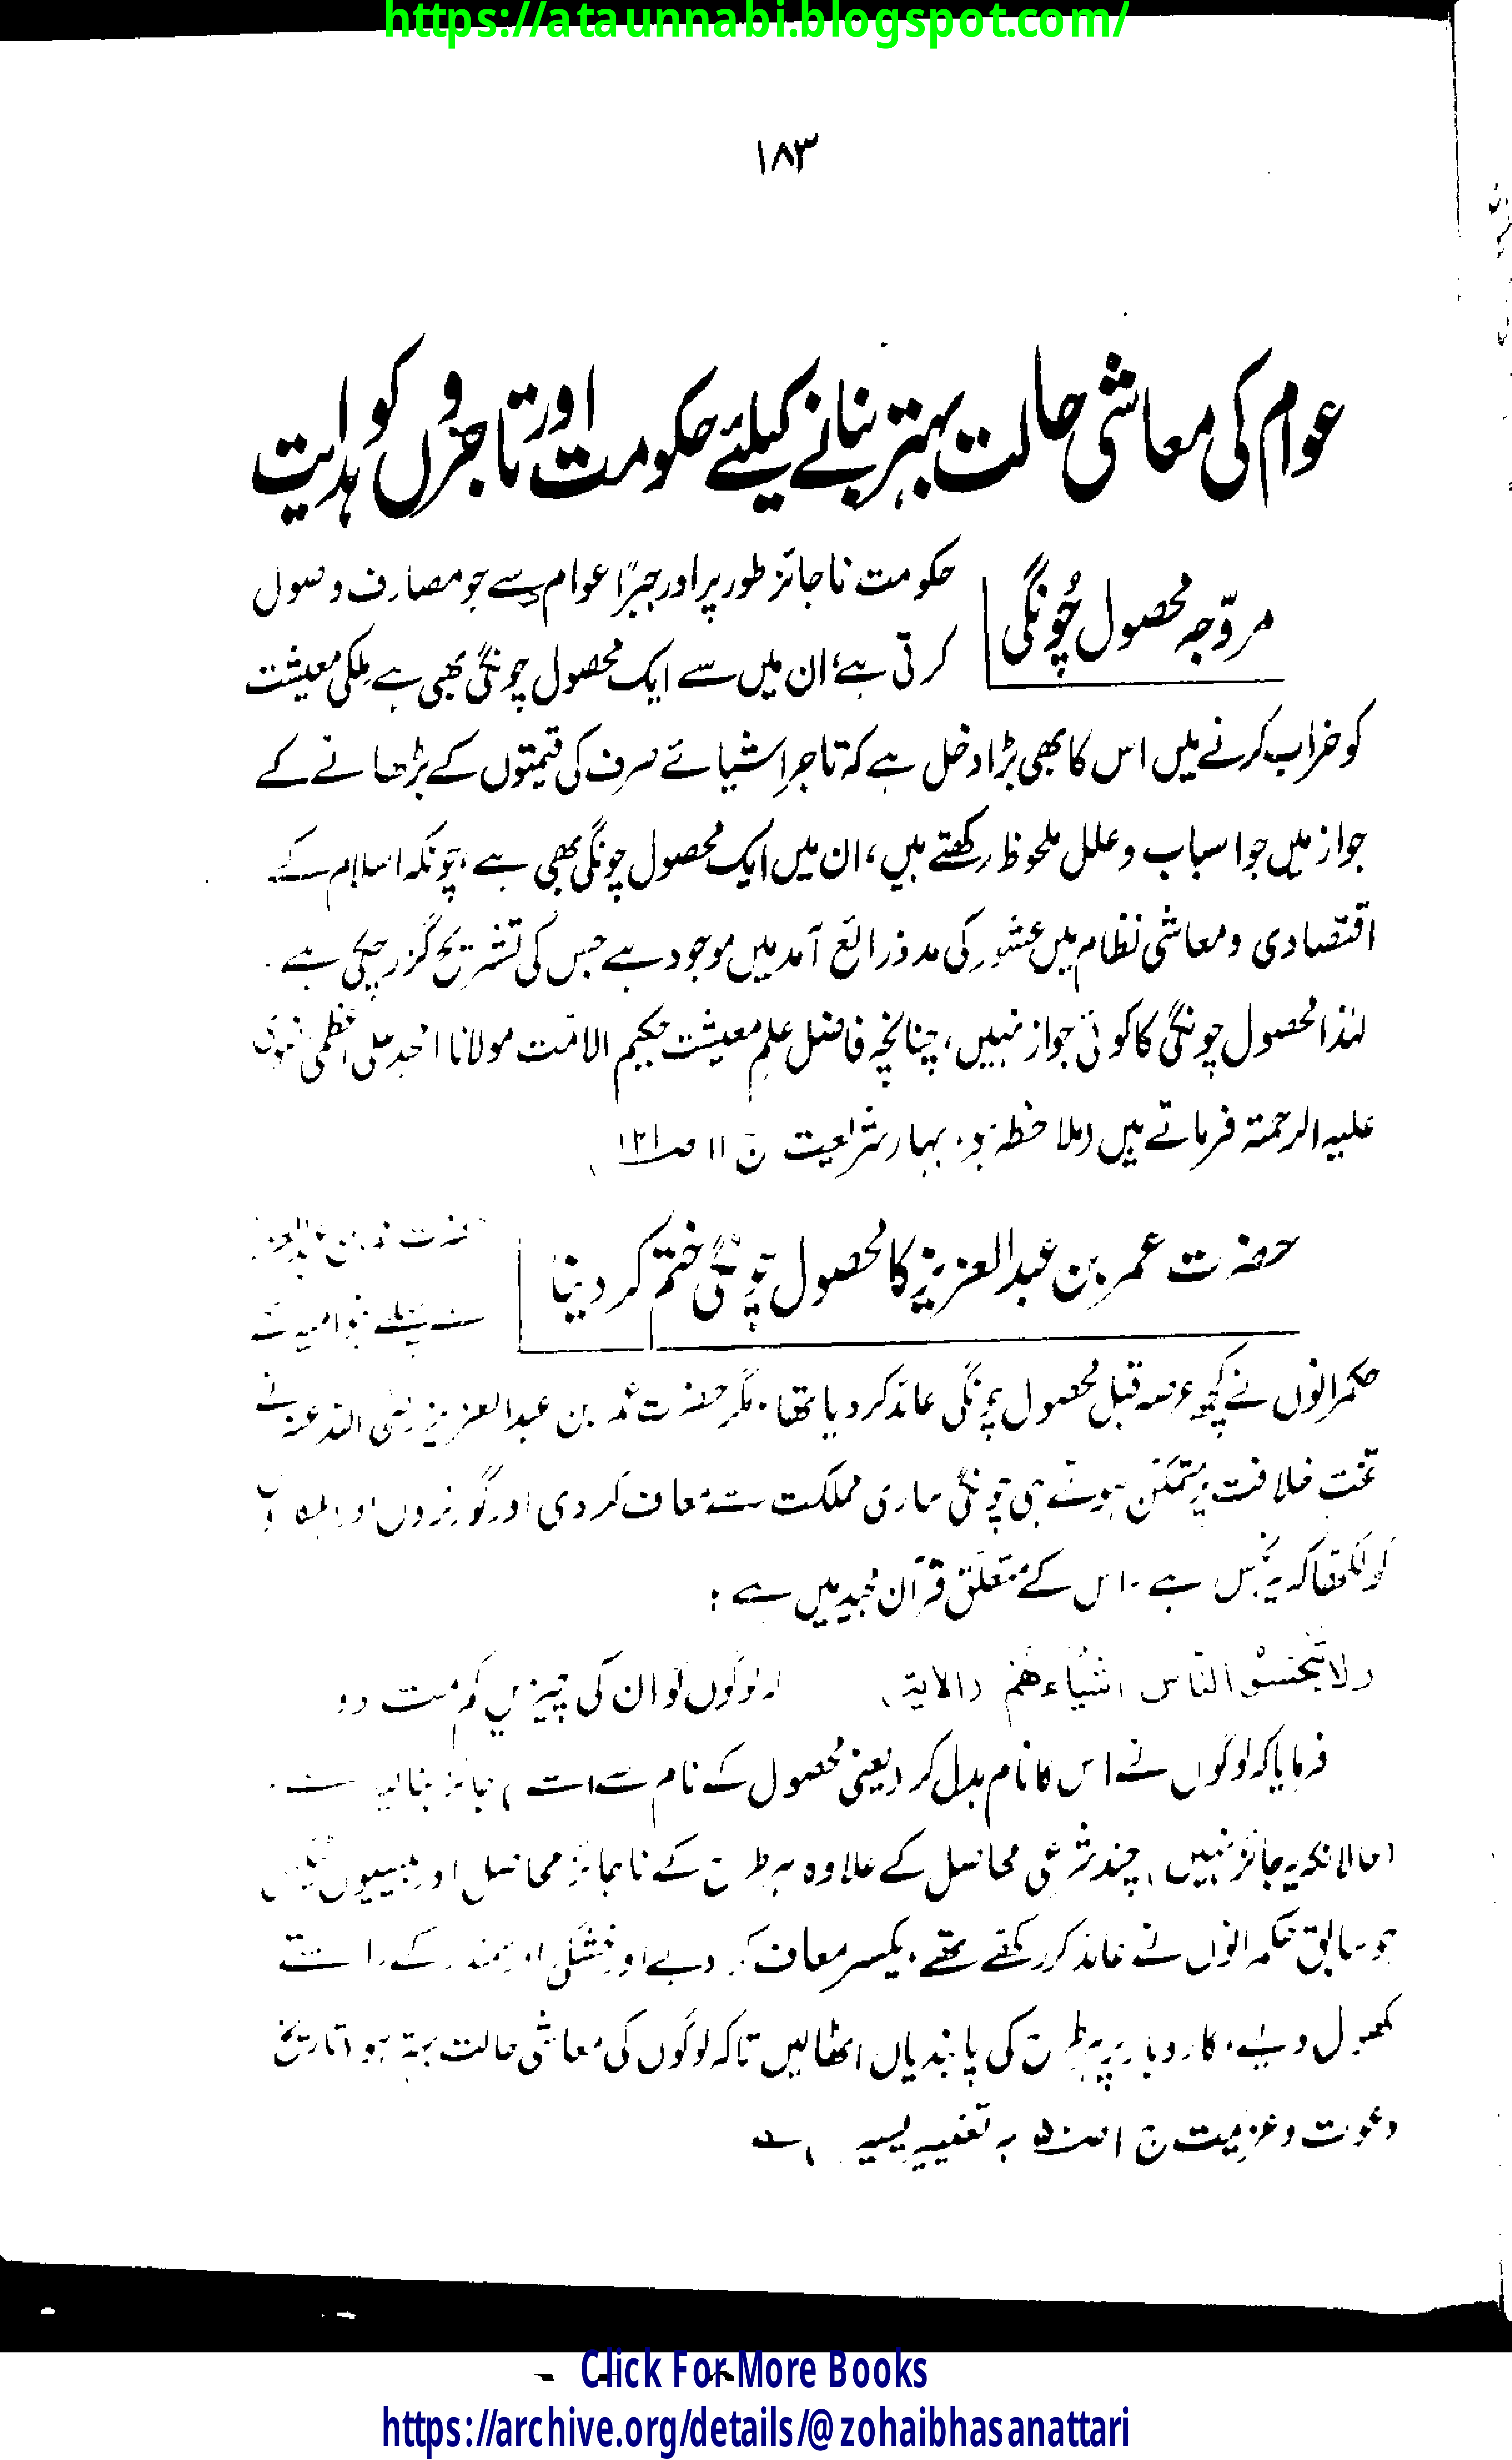 https://ataunnabi.blogspot.com/
۱۸۳
عوام کی معاشی حالت بہتر بنانے کیلئے حکومت اور تاجروں کو ہدایت
مروّجہ محصول چُونگی
حکومت ناجائز طور پر اور جبرًا عوام سے جو مصارف وصول
کرتی ہے، ان میں سے ایک محصول چونگی بھی ہے ملکی معیشت
کو خراب کرنے میں اس کا بھی بڑا دخل ہے کہ تاجر اشیائے صرف کی قیمتوں کے بڑھانے کے
جواز میں جو اسباب و علل ملحوظ رکھتے ہیں، ان میں ایک محصول چونگی بھی ہے، چونکہ اسلام کے
اقتصادی و معاشی نظام میں عشور کی مد ذرائع آمد میں موجود ہے جس کی تشریح گزر چکی ہے۔
لہٰذا محصول چونگی کا کوئی جواز نہیں، چنانچہ فاضل علم معیشت حکیم الامّت مولانا امجد علی اعظمی رضوی
علیہ الرحمۃ فرماتے ہیں (ملاحظہ ہو، بہار شریعت ج ۱۱ ص۱۲۱)
حضرت عمر بن عبدالعزیز کا محصول چونگی ختم کر دینا
حضرت عمر بن عبدالعزیز
سے پہلے بنو امیہ کے
حکمرانوں نے کچھ عرصہ قبل محصول چونگی عائد کر دیا تھا۔ مگر حضرت عمر بن عبدالعزیز رضی اللہ عنہ نے
تخت خلافت پر متمکن ہوتے ہی چونگی ساری مملکت سے معاف کر دی اور گورنروں اور
کو لکھا کہ یہ نجس ہے۔ اس کے متعلق قرآن مجید میں ہے:
ولا تبخسوا الناس اشیاءھم (الایۃ)
اور لوگوں کو ان کی چیزیں کم مت دو
فرمایا کہ لوگوں نے اس کا نام بدل کر (یعنی محصول کے نام سے اسے) جائز بنا لیا ہے۔
(حالانکہ یہ جائز نہیں) چند شرعی محاصل کے علاوہ ہر طرح کے ناجائز محاصل اور ٹیکسوں
جو سابق حکمرانوں نے عائد کر رکھے تھے، یکسر معاف کر دیے اور خشکی اور سمندر کے راستے
کھول دیئے، کاروبار پر ہر طرح کی پابندیاں اٹھالیں تاکہ لوگوں کی معاشی حالت بہتر ہو (تاریخ
دعوت و عزیمت ج ۱ بہ تغییر یسیر)
Click For More Books
https://archive.org/details/@zohaibhasanattari